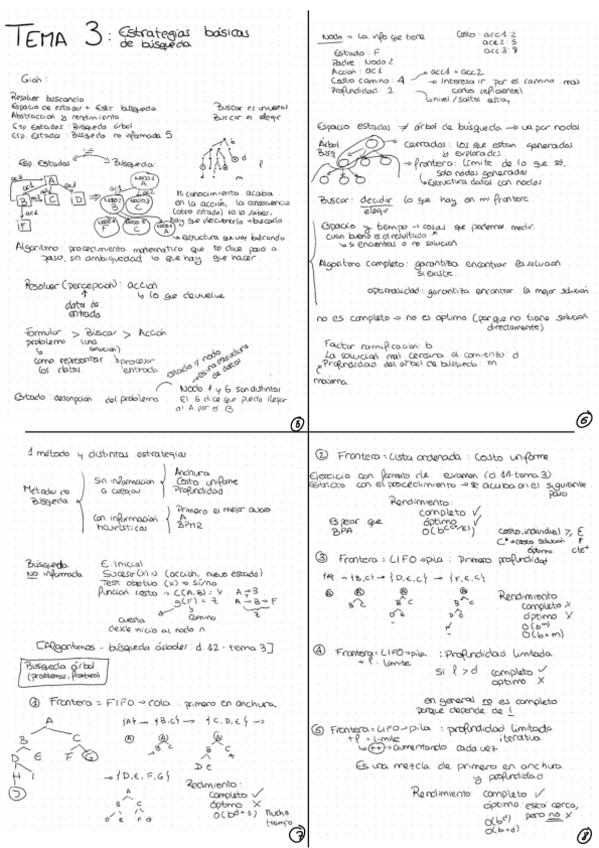 TEMA 3: Estrategias básicas
de búsqueda
Guión:
Resolver buscando
Espacio de estados + Estr búsqueda
Abstracción y rendimiento
Esp Estados: Búsqueda árbol
Esp. Estados: Búsqueda no informada 5
Buscar es universal
Buscar es elegir
b
d
l
m
Esp Estados
Búsqueda
Mi conocimiento acaba
en la acción, la consecuencia
(otro estado) no lo saben,
hay que descubrirlo → buscarlo
→ estructura que voy buscando
Algoritmo: procedimiento matemático que te dice paso a
paso, sin ambigüedad lo que hay que hacer
Resolver (percepción): acción
↳ lo que devuelve
datos de
entrada
Formular > Buscar > Acción
problema una
solución)
como representar
los datos
procesar
entrada
estado ≠ nodo
es una estructura
de datos
Nodo 1 y 6 son distintos
El 6 dice que puedo llegar
al A por el B
Estado: descripción del problema
5
Nodo → La info que tiene
Estado: F
Padre: Nodo 2
Acción: ac1
Costo camino: 4 → acc1 + acc2
Profundidad: 2
Costo: acc1: 2
acc2: 5
acc3: 8
→ interesa ir por el camino más
corto (eficiente)
↳ nivel/saltos estoy
Espacio estados ≠ árbol de búsqueda → va por nodos
Árbol
Búsq
cerrados: los que están generados
y explorados
frontera: límite de lo que sé,
solo nodos generados
↳ Estructura datos con nodos
Buscar: decidir lo que hay en mi frontera
elegir
Espacio y tiempo → cosas que podemos medir
cuan bueno es el resultado
↳ si encuentas o no solución
Algoritmo completo: garantiza encontrar la solución
si existe.
optimalidad: garantiza encontrar la mejor solución
no es completo → no es óptimo (porque no tiene solución
directamente)
Factor ramificación: b
La solución más cercana al comiento d
Profundidad del árbol de búsqueda m
máxima
6
1 método y distintas estrategias
Métodos de
Búsqueda
Sin información
a ciegas
Anchura
Costo uniforme
Profundidad
con información
heurísticas
Primero el mejor
A
Búsqueda
NO informada
E. Inicial
Test objetivo (x) → sí/no
Función costo → C(A,B) = V A → B
g(F) = Z A → B → F
cuesta
camino
desde inicio al nodo n
[Algoritmos - búsqueda árboles: d 12 - tema 3]
Búsqueda árbol
(problemas, frontera)
① Frontera = FIFO → cola: primero en anchura
{A} → {B,C} → {C,D,E} →
→ {D,E,F,G}
Rendimiento:
completo ✓
óptimo X
mucho
tiempo
7
② Frontera = Lista ordenada: Costo uniforme
Ejercicio con formato de examen (d 14 - tema 3)
Estricto con el procedimiento → se acaba en el siguiente
paso
Rendimiento:
completo ✓
óptimo ✓
③ Frontera = LIFO → pila: Primero profundidad
{A} → {B,C} → {D,E,C} → {F,E,C}
Rendimiento
completo X
óptimo X
O(bᵐ)
O(b×m)
④ Frontera = LIFO → pila: Profundidad limitada
+ l: límite
Si l > d
completo ✓
óptimo X
en general no es completo
porque depende de l
⑤ Frontera = LIFO → pila: profundidad limitada
+ l = límite iterativa
↳ (++) → aumentando cada vez
Es una mezcla de primero en anchura
y profundidad
Rendimiento: completo ✓
óptimo está cerca,
pero no X
O(bᵈ)
O(b×d)
8